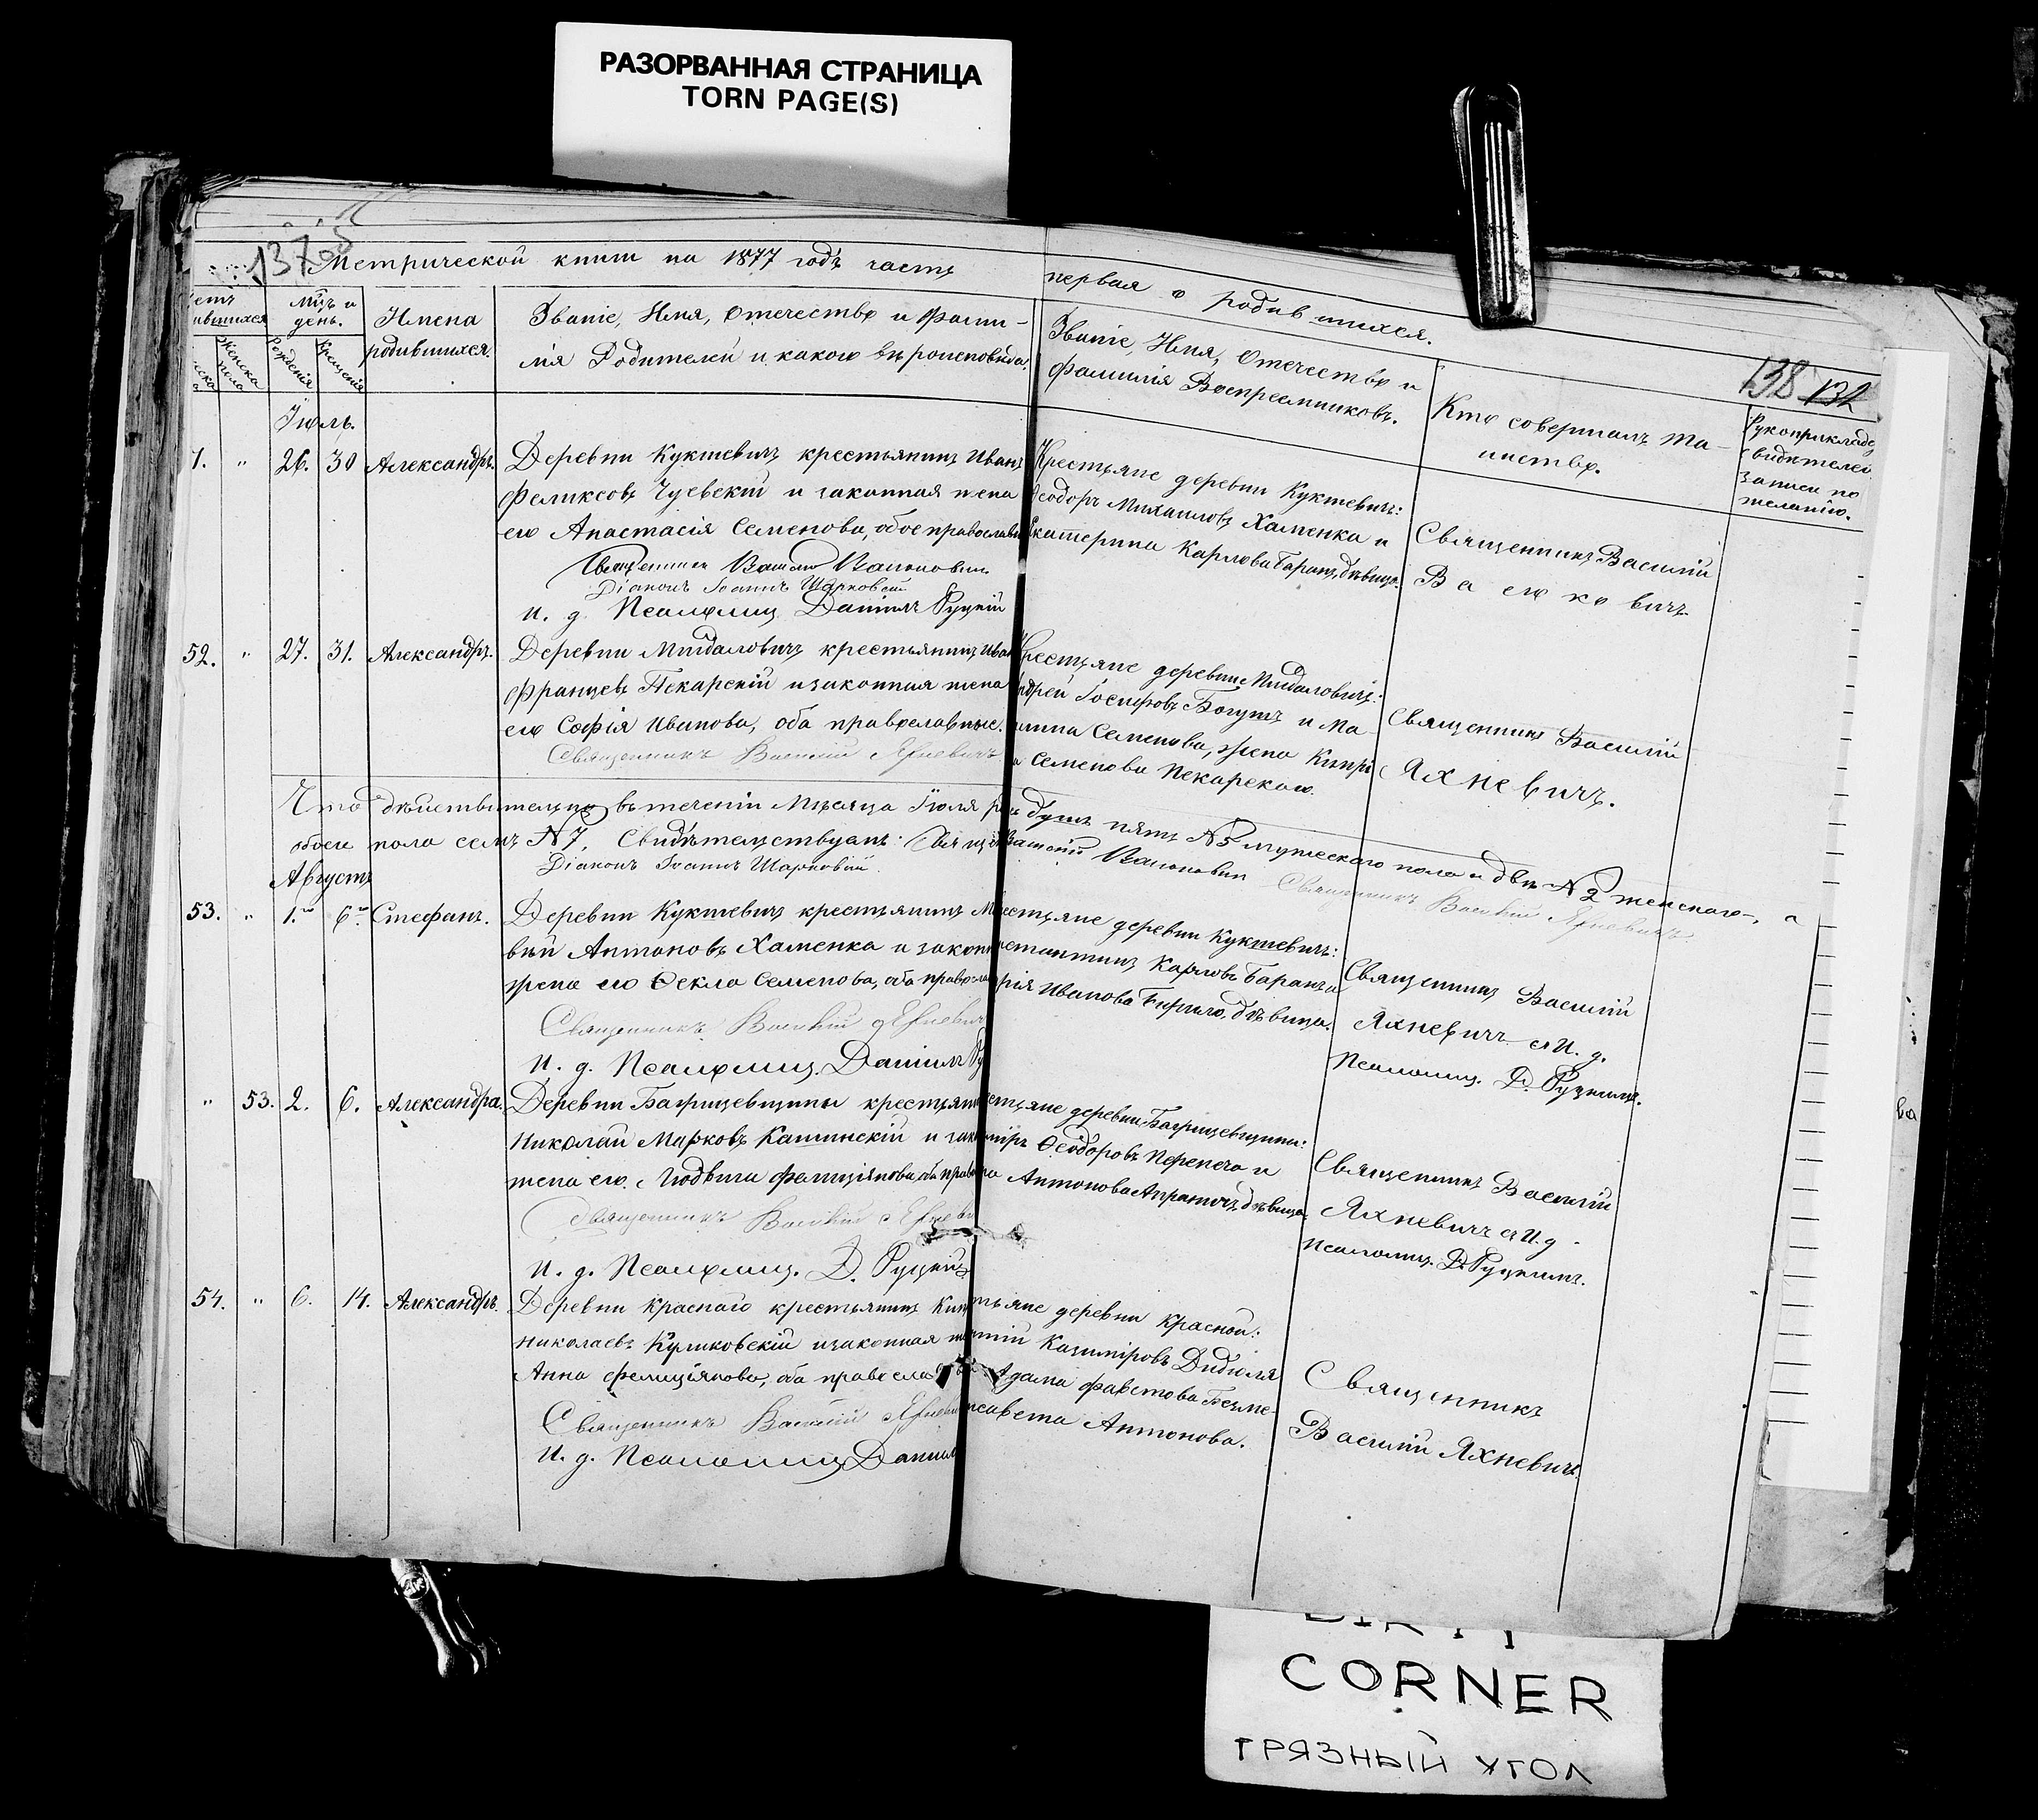 РАЗОРВАННАЯ СТРАНИЦА
TORN PAGE(S)
137
Метрической книги на 1877 годъ часть
первая о родившихся.
138 132
мцъ и
день.
Имена
родившихся.
Женска
пола
Рожденія
Крещенія
Званіе, Имя, Отечество и Фами-
лія Родителей и какого вѣроисповѣда
Званіе, Имя, Отечество и
фамилія Воспреемниковъ.
Кто совершалъ та-
инство.
Рукоприклад
свидѣтелей
записи по
желанію.
Іюль.
1. " 26. 30 Александръ.
Деревни Куктевичъ крестьянинъ Иванъ
Феликсовъ Чуевскій и законная жена
его Анастасія Семенова, обое православн
Діаконъ Іоаннъ Шарковскій
и. д. Псаломщ. Даніилъ Руцкій
Крестьяне деревни Куктевичъ:
Ѳеодоръ Михаиловъ Хаменка и
Екатерина Карлова Баранъ, дѣвица.
Священникъ Василій
52. " 27. 31. Александръ.
Деревни Мигдаловичъ крестьянинъ Иван
Францевъ Пекарскій и законная жена
его Софія Иванова, оба православные.
Священникъ Василій Яхневичъ
Крестьяне деревни Мигдаловичъ:
ндрей Іосифовъ Богушъ и Ма-
рина Семенова, жена Кипрі
а Семенова Пекарскаго.
Священникъ Василій
Яхневичъ.
Что дѣйствительно въ теченіи Мѣсяца Іюля
душъ пять № 5 мужескаго пола и двѣ № 2 женскаго, а
обоего пола семь № 7. Свидѣтельствуемъ:
Священникъ Василій Яхневичъ
Діаконъ Іоаннъ Шарковскій.
Августъ
53. " 1. 6. Стефанъ.
Деревни Куктевичъ крестьянинъ М
вѣй Антоновъ Хаменка и законн
жена его Ѳекла Семенова, оба правосла
Священникъ Василій Яхневич
И. д. Псаломщ. Даніилъ Ру
естьяне деревни Куктевичъ:
нстантинъ Карловъ Баранъ и
рія Иванова Бирило, дѣвица.
Священникъ Василій
Яхневичъ съ И. д.
Псаломщ. Д. Руцкимъ.
" 53. 2. 6. Александра.
Деревни Багрицевщины крестьяни
Николай Марковъ Кашинскій и зак
жена его Людвига Фелиціянова, оба прав
Священникъ Василій Яхневи
И. д. Псаломщ. Д. Руцкій
естьяне деревни Багрицевщины:
иміръ Ѳеодоровъ Перепеча и
ра Антонова дѣвица.
Священникъ Василій
Яхневичъ съ И. д.
Псаломщ. Д. Руцкимъ.
54. " 6. 14. Александръ.
Деревни Краснаго крестьянинъ Кип
Николаевъ Куликовскій и законная
Анна Фелиціянова, оба правосла
Священникъ Василій Яхневи
И. д. Псаломщ. Даніил
тьяне деревни Красной:
Казиміровъ Дидюля
Адама Фавстова
исавета Антонова.
Священникъ
Василій Яхневичъ.
ва
CORNER
ГРЯЗНЫЙ УГОЛ